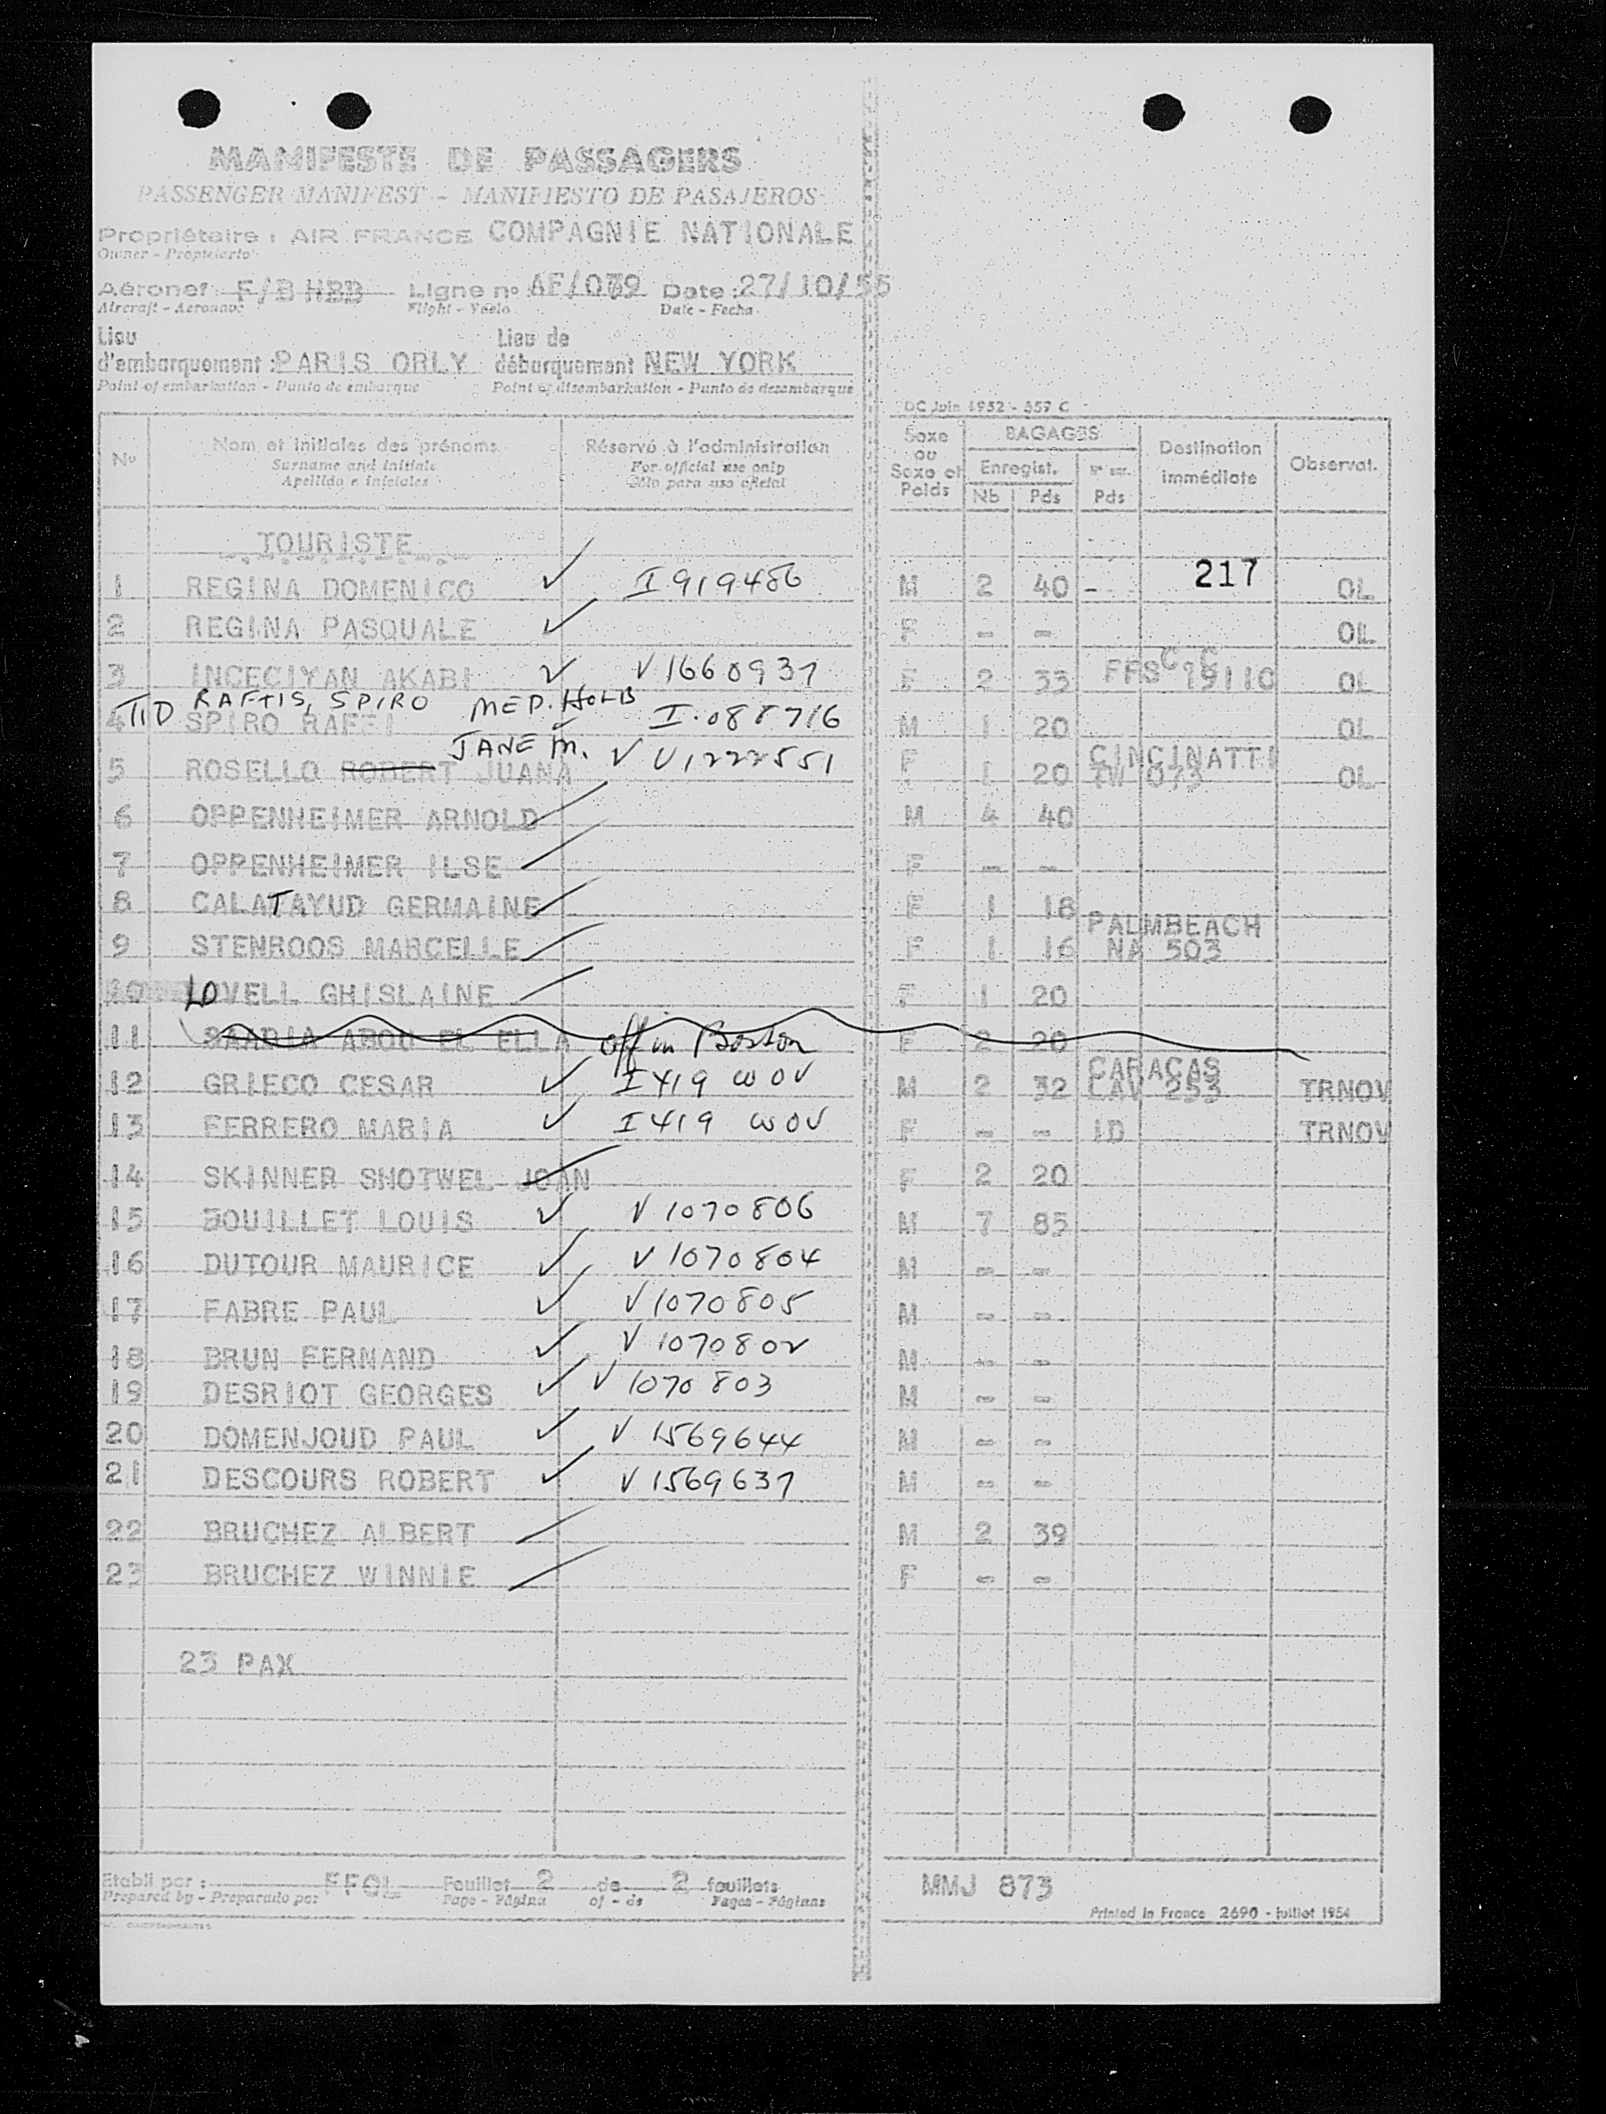 MANIFESTE DE PASSAGERS
PASSENGER MANIFEST - MANIFIESTO DE PASAJEROS
Propriétaire : AIR FRANCE COMPAGNIE NATIONALE
Owner - Propietario
Aéronef : F/BHBB Ligne nº AF/079 Date : 27/10/55
Aircraft - Aeronave Flight - Vuelo Date - Fecha
Lieu d'embarquement : PARIS ORLY Lieu de débarquement NEW YORK
Point of embarkation - Punto de embarque Point of disembarkation - Punto de desembarque
DC Juin 1952 - 557 C
Nº Nom et initiales des prénoms Réservé à l'administration Sexe ou Sexe et Poids BAGAGES Destination immédiate Observat.
Surname and initials For official use only Enregist.
Apellido e iniciales Sólo para uso oficial Nb Pds Pds
TOURISTE
217
1 REGINA DOMENICO ✓ I 919486 M 2 40 - OL
2 REGINA PASQUALE ✓ F - - OL
3 INCECIYAN AKABI ✓ V 1660937 F 2 33 FFS OL
TID RAFTIS, SPIRO MED. HOLD
4 SPIRO RAFFI ✓ I.088716 M 1 20 OL
JANE M.
5 ROSELLO ROBERT JUANA ✓ U1222551 F 1 20 CINCINATTI TW 073 OL
6 OPPENHEIMER ARNOLD M 4 40
7 OPPENHEIMER ILSE F - -
8 CALATAYUD GERMAINE F 1 18
9 STENROOS MARCELLE F 1 16 PALMBEACH NA 503
10 LOVELL GHISLAINE F 1 20
11 SAADIA ABOU EL ELLA off in Boston F 2 20
12 GRIECO CESAR ✓ I 419 WOV M 2 32 CARACAS LAV 253 TRNOV
13 FERRERO MARIA ✓ I 419 WOV F - - ID TRNOV
14 SKINNER SHOTWEL JOAN F 2 20
15 BOUILLET LOUIS ✓ V 1070806 M 7 85
16 DUTOUR MAURICE ✓ V 1070804 M - -
17 FABRE PAUL ✓ V 1070805 M - -
18 BRUN FERNAND ✓ V 1070802 M - -
19 DESRIOT GEORGES ✓ V 1070803 M - -
20 DOMENJOUD PAUL ✓ V 1569644 M - -
21 DESCOURS ROBERT ✓ V 1569637 M - -
22 BRUCHEZ ALBERT M 2 39
23 BRUCHEZ WINNIE F - -
23 PAX
Etabli par : FFOL Feuillet 2 de 2 feuillets MMJ 873
Prepared by - Preparado por Page - Página of - de Pages - Páginas
Printed in France 2690 - juillet 1954